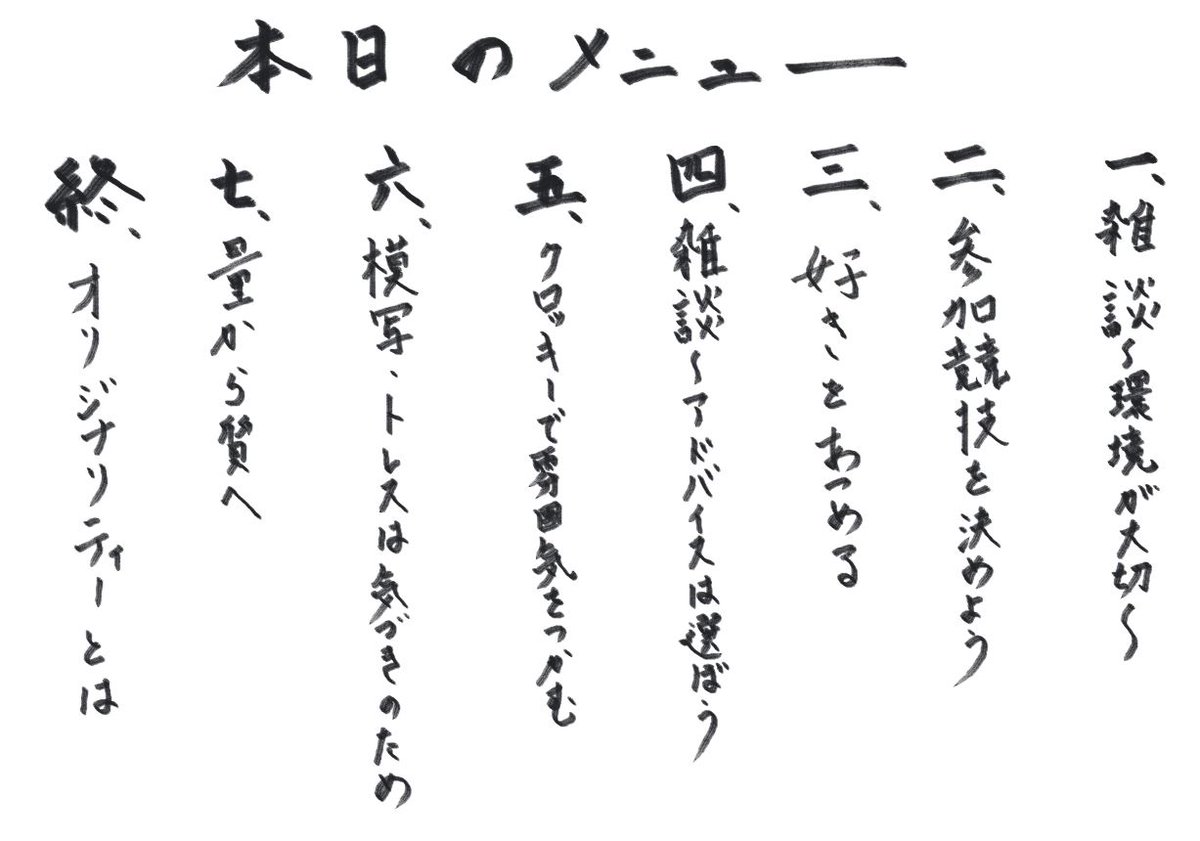 本日のメニュー
一、雑談~環境が大切~
二、参加競技を決めよう
三、好きをあつめる
四、雑談~アドバイスは選ぼう
五、クロッキーで雰囲気をつかむ
六、模写・トレスは気づきのため
七、量から質へ
終、オリジナリティーとは